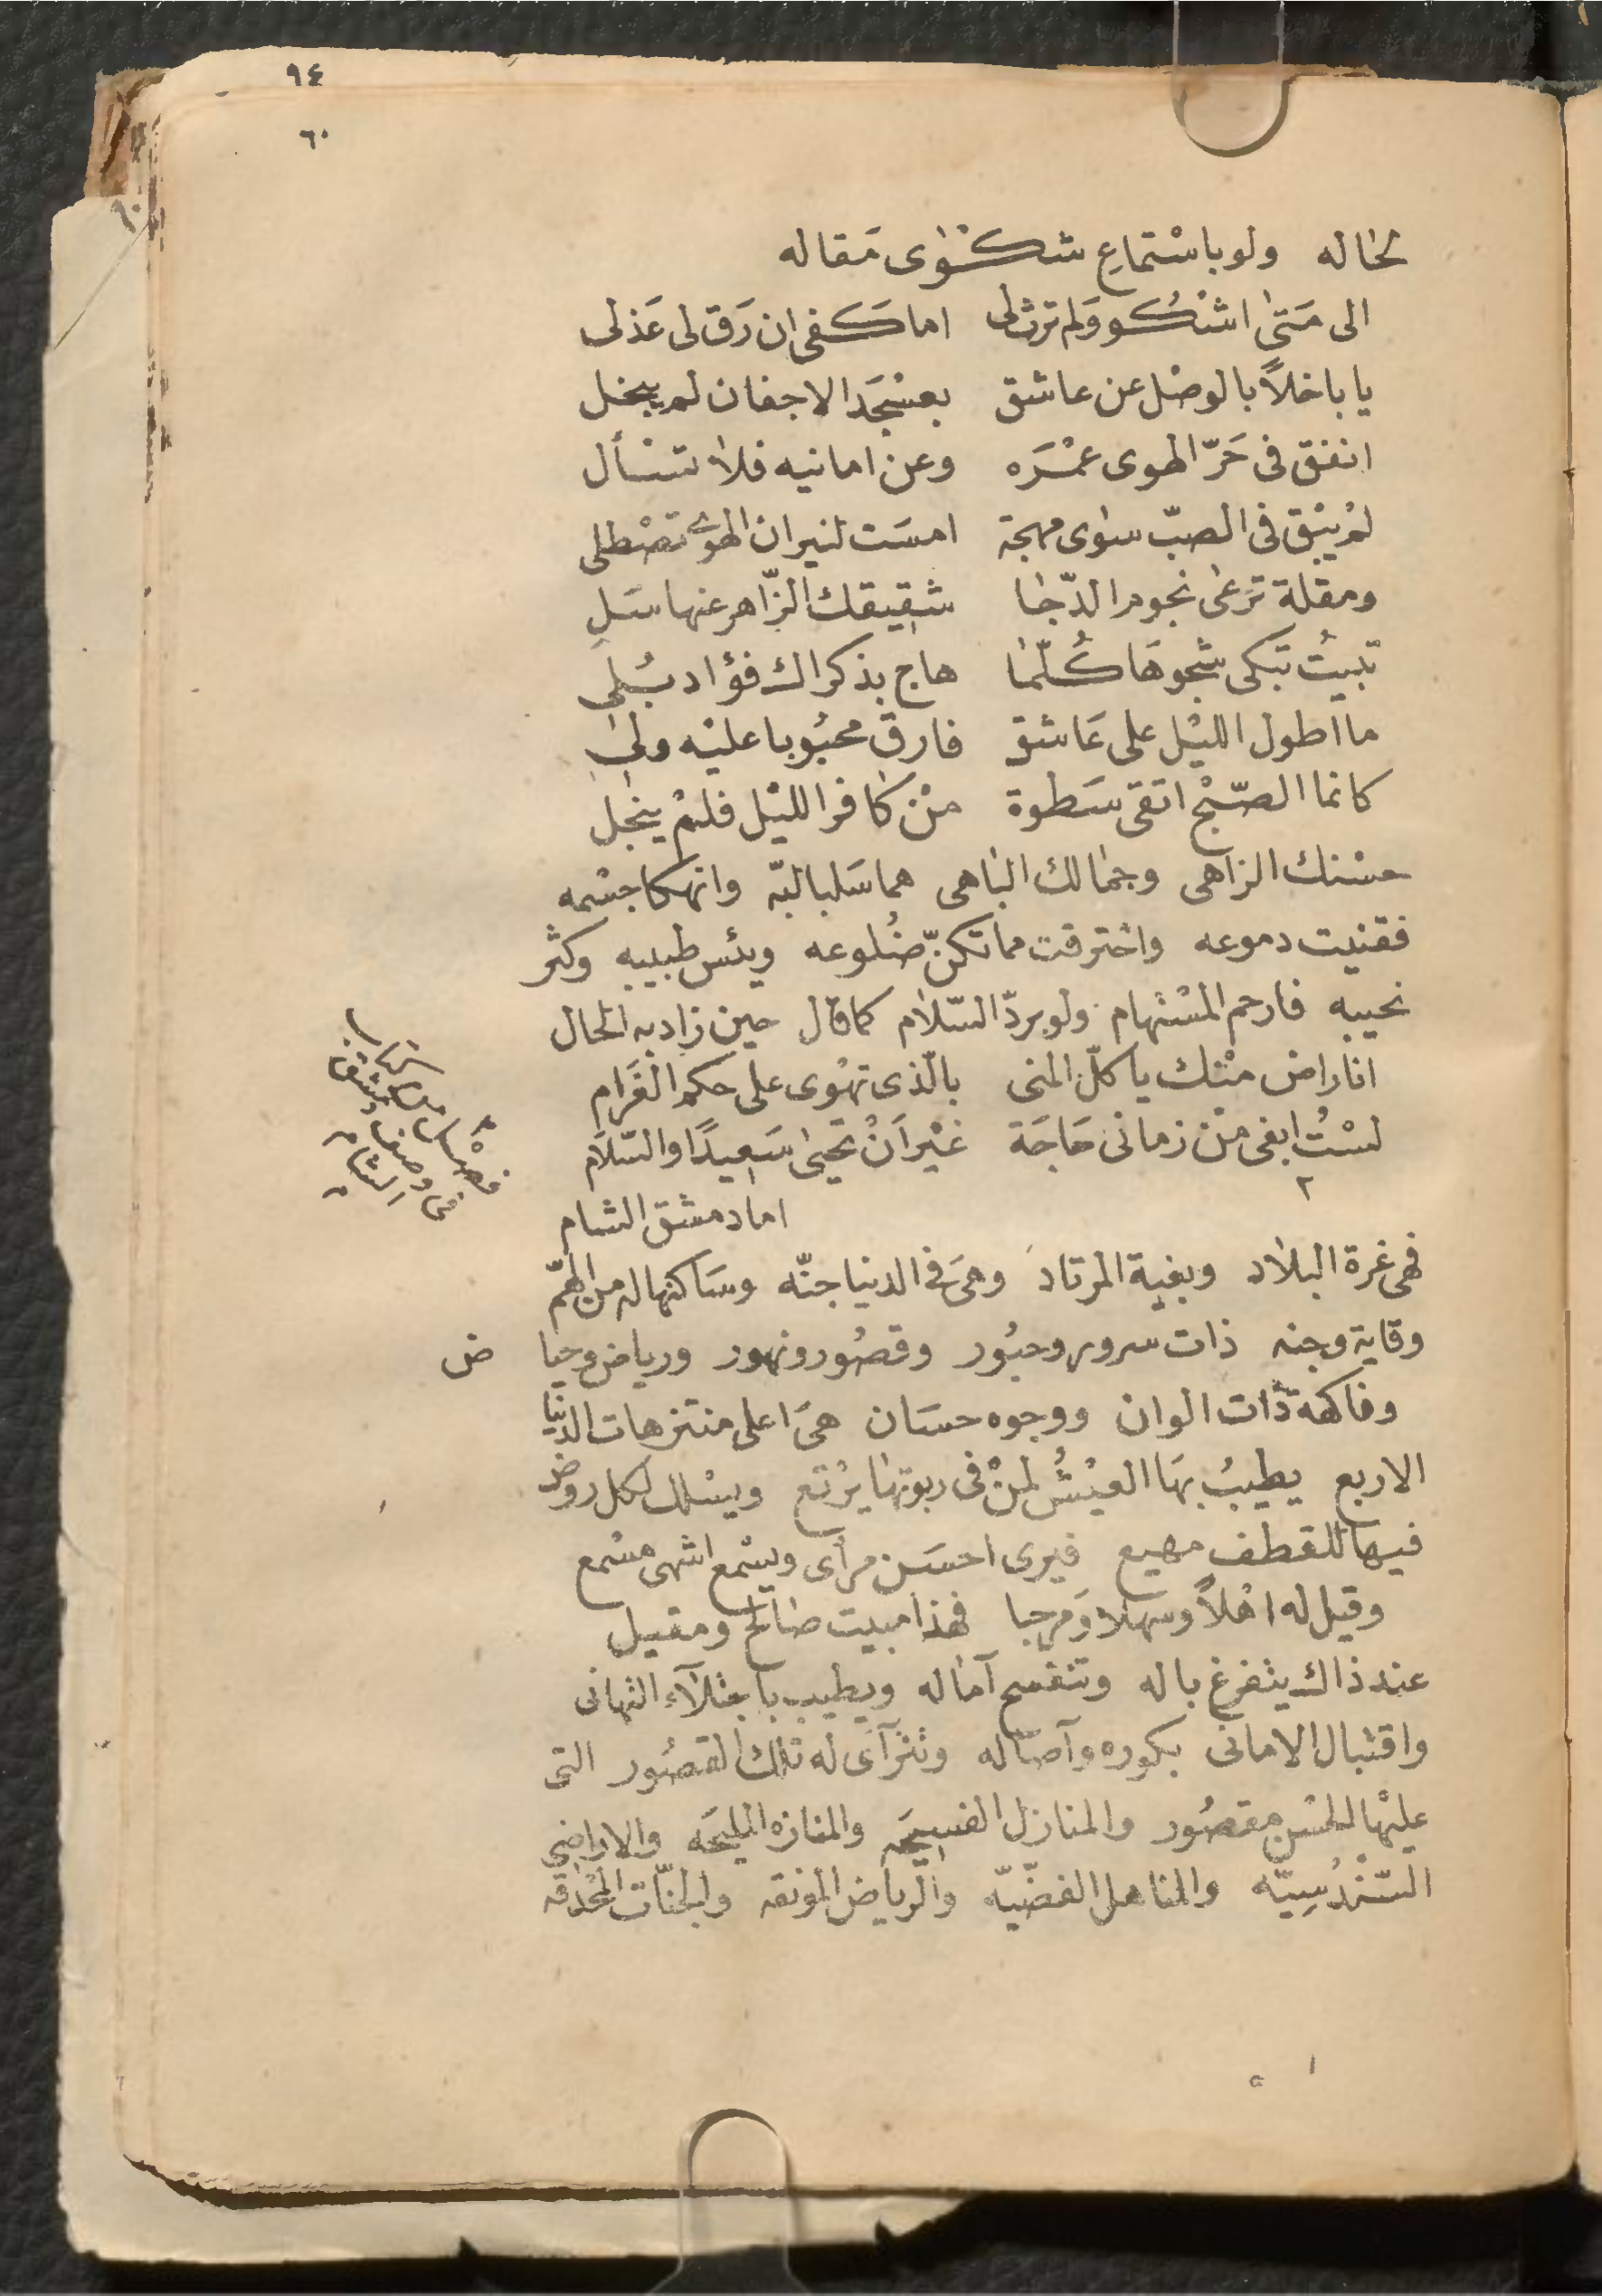 ٩٤
٦٠
٦٠
لحاله ولو باسْتماعِ شكْوى مَقاله
الى مَتى اشْكُو وَلم ترث لى اما كَفى ان رَق لى عَذلى
يا باخلاً بالوصْل عن عاشق بعسْجَد الاجفان لم يبخل
انفق فى حَرّ الهوى عمْرَه وعن امانيه فلا تسْأل
لمْ يبْق فى الصبّ سوى مهجة امسَت لنيران الهوى تصْطلى
ومقلة تَرعى نجوم الدّجا شقيقك الزّاهر عنها سَلِ
تبيتُ تبَكى شجوهَا كُلّما هاج بذكراك فؤاد بُلى
ما اطول الليْل على عَاشق فارق محبُوبا عليْه ولى
كانما الصّبْح اتقى سَطوة منْ كافر الليْل فلمْ ينجل
حسْنك الزاهى وجمالك الباهى هما سَلبا لبّه وانهكا جسْمه
ففنيت دموعه واحْترقت مما تكنّ ضُلوعه ويئس طبيبه وكثر
نحيبه فارحم المسْتهام ولو بردّ السّلام كما قال حين زاد به الحال
انا راض منْك يا كلّ المنى بالّذى تهْوى على حكم الغَرام
لسْتُ ابغى منْ زمانى حَاجَة غيْر اَنْ تحيى سَعيدًا والسّلام
٢
اما دمشق الشام
فى وصف دمشق الشام
فهى غرة البلاد وبغية المرتاد وهىَ فى الدنيا جنّه وسَاكنها له من الهمّ
وقاية وجنه ذات سرور وحبُور وقصُور ونهور ورياض وحيا ض
وفاكهة ذات الوان ووجوه حسَان هىَ اعلى منتزهات الدنيا
الاربع يطيبُ بهَا العيْشُ لمنْ فى ربوتها يرْتع ويسْلك لكل روض
فيها للقطف مهيع فيرى احسَن مرأى ويسْمع اشهى مسْمع
وقيل له اهْلاً وسهلا وَمرحبا فهذا مبيت صالح ومقيل
عند ذاك يتفرغ باله وتنفسح آماله ويطيب باجتلآء التهانى
واقتبال الامانى بكوره وآصاله وتترآى له تلك القصُور التى
عليْها الحسْن مقصُور والمنازل الفسيحَه والمنازه المليحَه والاراضى
السّنْدُسِيّه والمناهل الفضّيّه والرياض المونقه والجنّات المحْدقه